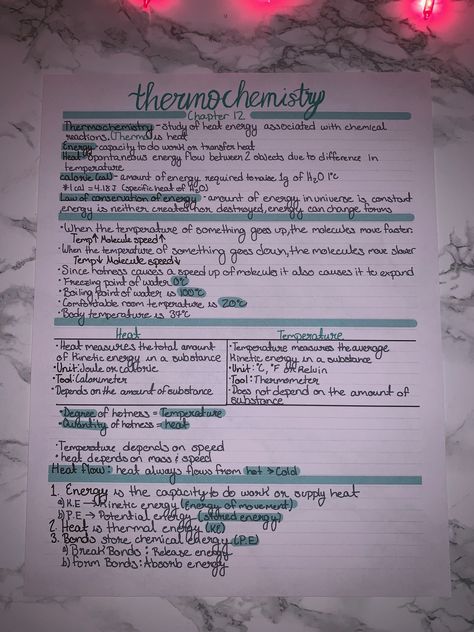 thermochemistry
Chapter 12
Thermochemistry - study of heat energy associated with chemical
reactions. Thermo is heat
Energy - capacity to do work or transfer heat
Heat - spontaneous energy flow between 2 objects due to difference in
temperature
calorie (cal) - amount of energy required to raise 1g of H2O 1°C
*1 cal = 4.18 J (specific heat of H2O)
Law of conservation of energy - amount of energy in universe is constant
energy is neither created nor destroyed, energy can change forms
• When the temperature of something goes up, the molecules move faster.
Temp↑ Molecule speed↑
• When the temperature of something goes down, the molecules move slower
Temp↓ Molecule speed↓
• Since hotness causes a speed up of molecule it also causes it to expand
• Freezing point of water 0°C
• Boiling point of water is 100°C
• Comfortable room temperature is 20°C
• Body temperature is 37°C
Heat
• Heat measures the total amount
of Kinetic energy in a substance
• Unit: Joule or calorie
• Tool: Calorimeter
• Depends on the amount of substance
Temperature
• Temperature measures the average
Kinetic energy in a substance
• Unit: °C, °F or Kelvin
• Tool: Thermometer
• Does not depend on the amount of
substance
• Degree of hotness = Temperature
• Quantity of hotness = heat
• Temperature depends on speed
• heat depends on mass & speed
Heat flow: heat always flows from hot > Cold
1. Energy is the capacity to do work or supply heat
a) K.E → Kinetic energy (Energy of movement)
b) P.E → Potential energy (stored energy)
2. Heat is thermal energy (KE)
3. Bonds store chemical energy (P.E)
a) Break Bonds: Release energy
b) Form Bonds: Absorb energy